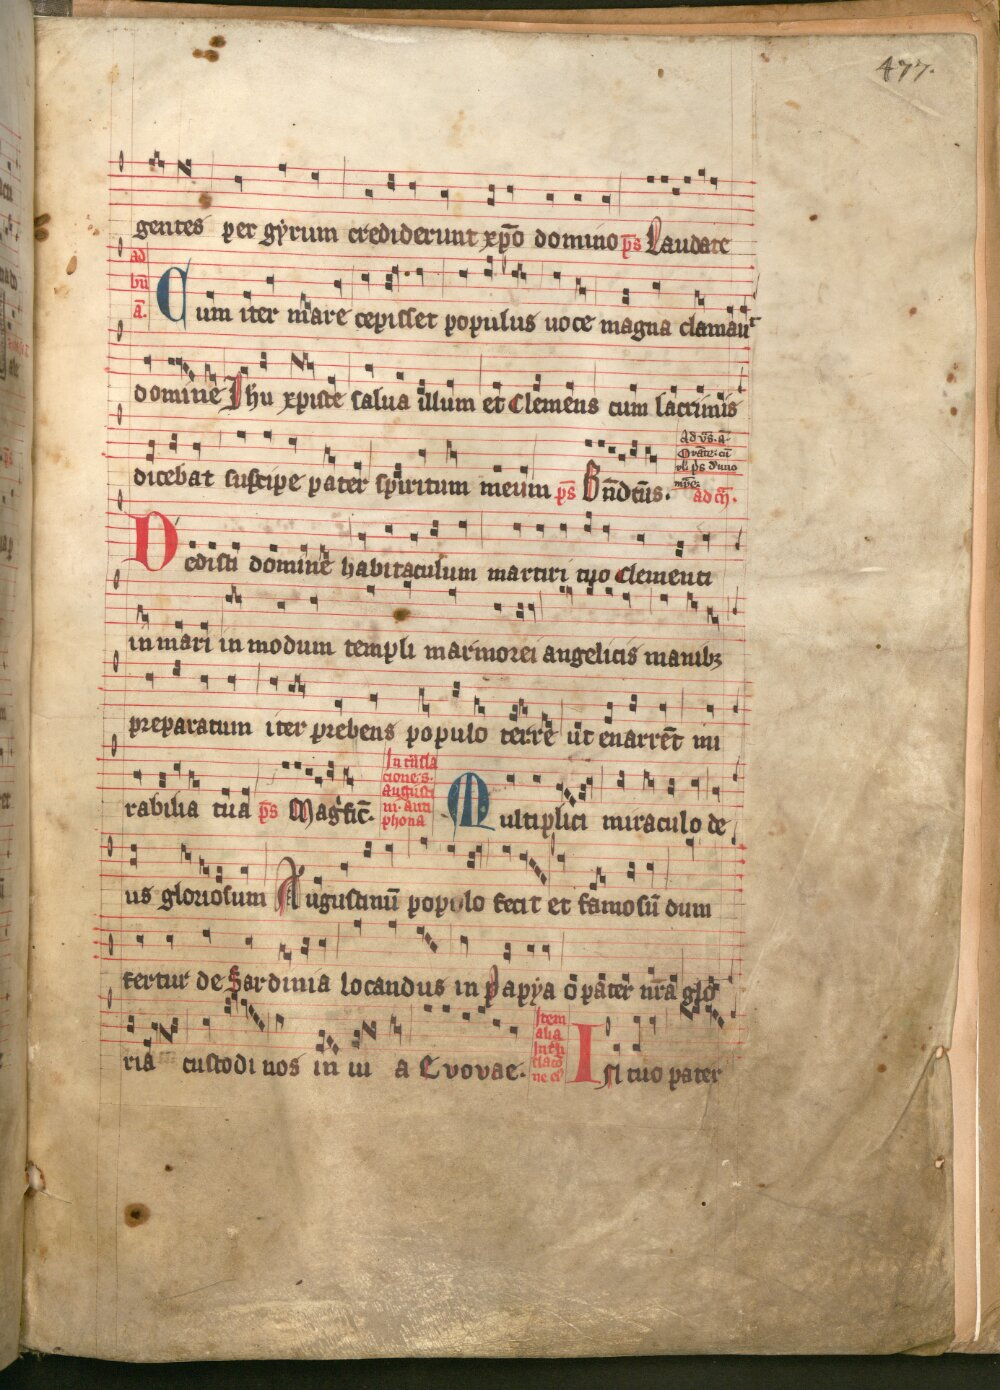 477.
gentes per gẏrum crediderunt xp̄o domino p̄s Laudate
ad bn̄ a̅. Cum iter mare cepisset populus uoce magna clamaut
domine Ihu xpiste salua illum et Clemens cum lacrimis
dicebat suscipe pater spiritum meum p̄s Bn̄dcūs. ad
Dedisti domine habitaculum martiri tuo Clementi
in mari in modum templi marmorei angelicis manibꝫ
preparatum iter prebens populo terre ut enarret mi
rabilia tua p̄s Magfic̄. In trāsla cione s. augusti ni. anti phona Multiplici miraculo de
us gloriosum Augustinū populo fecit et famosū dum
fertur de Sardinia locandus in Papẏa o pater nr̄a glo
ria custodi nos in tu a Evovae. Item alia Isti tuo pater